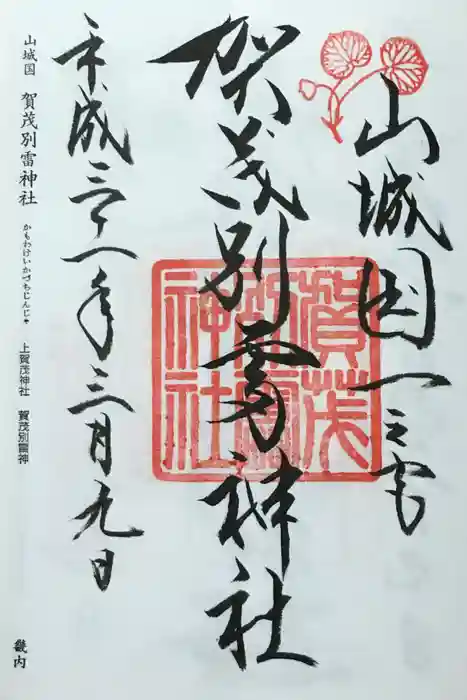 山城国一之宮
賀茂別雷神社
賀茂
別雷
神社
平成三十一年三月九日
山城国 賀茂別雷神社 かもわけいかづちじんじゃ 上賀茂神社 賀茂別雷神
畿内